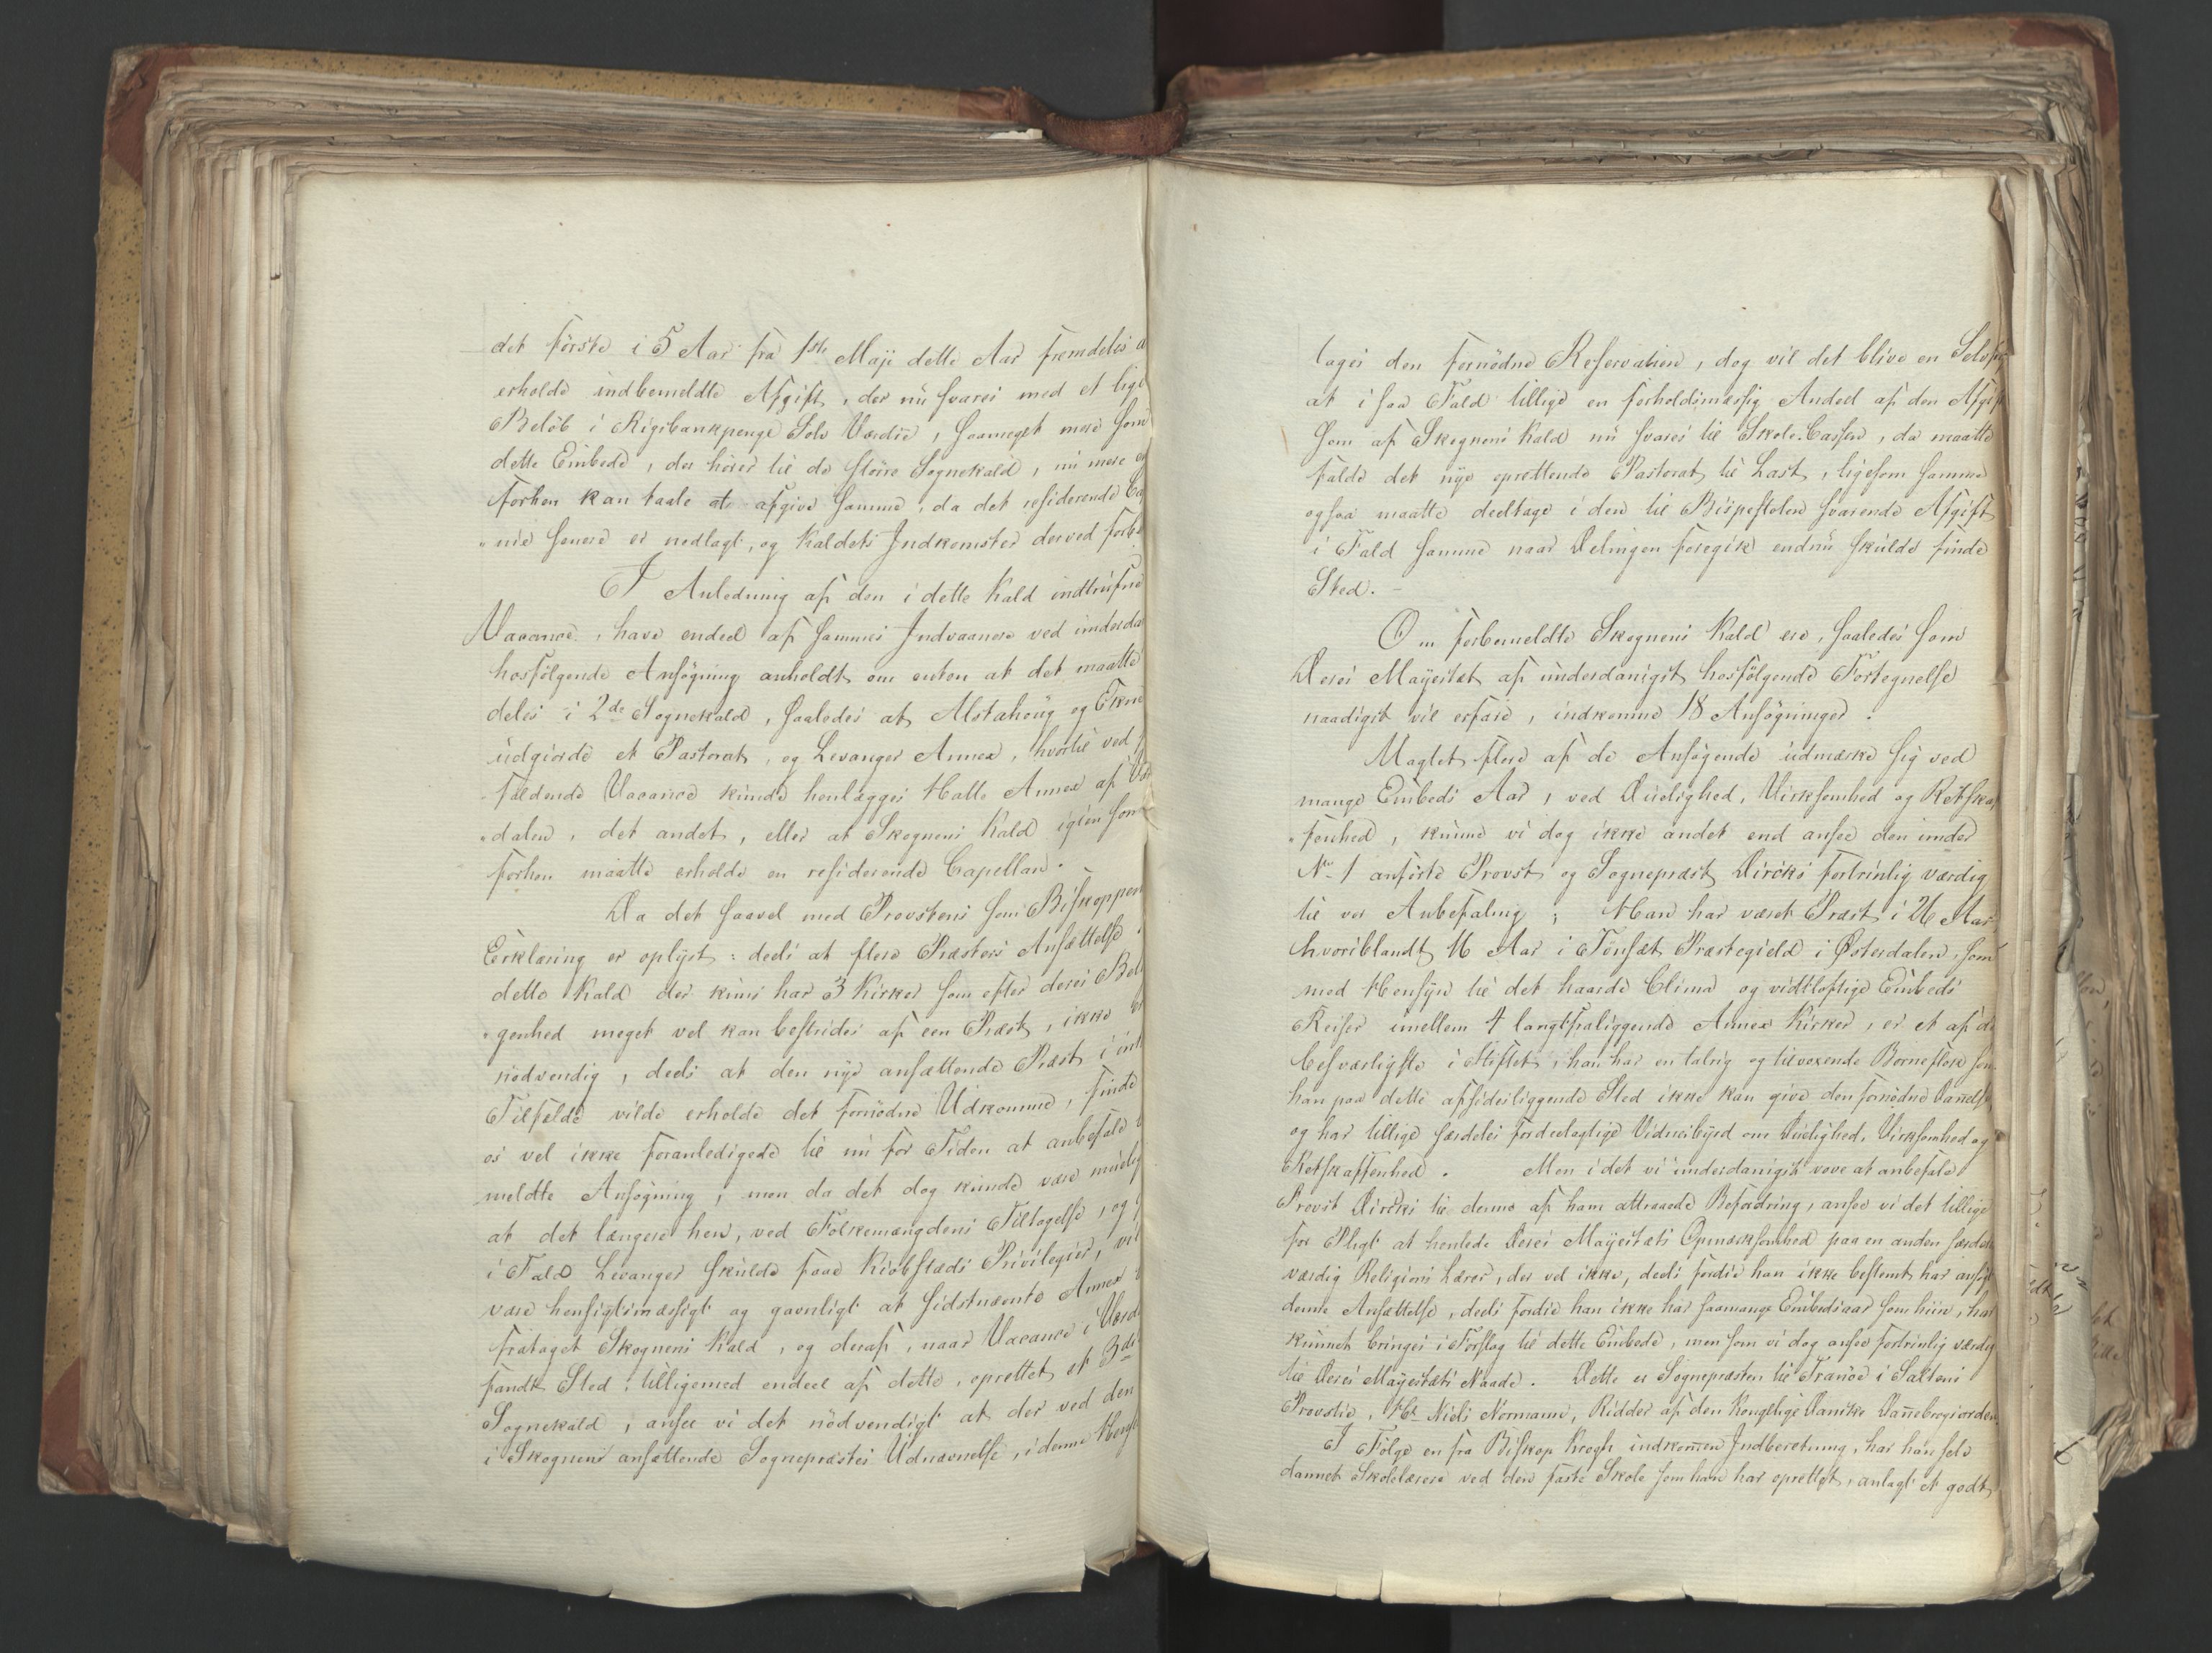 det første i 5 Aar fra 1ste Maji dette Aar fremdeles
erholde indbemeldte Afgift, der nu svares med et lige
Beløb i Rigsbankpenge Sølv Værdie, saameget mere som
dette Embede, der hører til de større Sognekald, nu mere
forhen kan taale at afgive samme, da det residerende
nie senere er nedlagt, og Kaldets Indkomster derved
I Anledning af den i dette Kald indtrufne
Vacance, have endeel af sammes Indvaanere ved
hosfølgende Ansøgning anholdt om enten at det maatte
deles i 2de Sognekald, saaledes at Alstahoug og Ekne
udgiorde et Pastorat, og Levanger Annex, hvortil ved
faldende Vacance kunde henlægges Halle Annex af
dalen, det andet, eller at Skognens Kald igien som
forhen maatte erholde en residerende Capellan.
Da det saavel med Provstens som Biskoppens
Erklæring er oplyst: deels at flere Præsters Ansættelse
dette Kald der kuns har 3 Kirker som efter deres
genhed meget vel kan bestrides af een Præst, ikke er
nødvendig, deels at den nye ansættende Præst i
Tilfælde vilde erholde det fornødne Udkomme, finde
os vel ikke foranledigede til nu for Tiden at anbefale
meldte Ansøgning, men da det dog kunde være
at det længere hen, ved Folkemængdens Tiltagelse, og
i Fald Levanger skulde faae Kiøbstæds Privilegier, vil
være hensigtsmæssigt og gavnligt at sidstnævnte Annex
frataget Skognens Kald, og deraf, naar Vacance i
fandt Sted, tilligemed endeel af dette, oprettet et 3die
Sognekald, ansee vi det nødvendigt at der ved den
i Skognens ansættende Sognepræstes Udnævnelse, i denne
tages den fornødne Reservation, dog vil det blive en
at i saa Fald tillige en forholdsmæssig Andeel af den
som af Skognens Kald nu svares til Skole-Cassen, da maatte
falde det nye oprettende Pastorat til Last, ligesom samme
ogsaa maatte deeltage i den til Bispestolen svarende Afgift
i Fald samme naar Delingen foregik endnu skulde finde
Sted. -
Om forbemeldte Skognens Kald ere, saaledes som
Deres Mayestæt af underdanigst hosfølgende Fortegnelse
naadigst vil erfare, indkomne 18 Ansøgninger.
Uagtet flere af de Ansøgende udmærke sig ved
mange Embeds Aar, ved Duelighed, Virksomhed og
fenhed, kunne vi dog ikke andet end ansee den under
No 1 anførte Provst og Sognepræst Dircks fortrinlig værdig
til vor Anbefaling; Han har været Præst i 26 Aar
hvoriblandt 16 Aar i Tønsæt Præstegield i Østerdalen, som
med Hensyn til det haarde Clima og vidtløftige Embeds
Reiser imellem 4 langtfraliggende Annex Kirker, er et af de
besværligste i Stiftet, han har en talrig og tilvoxende Børneflok som
han paa dette afsidesliggende Sted ikke kan give den fornødne Dannelse,
og har tillige særdeles fordeelagtige Vidnesbyrd om Duelighed, Virksomhed og
Retskaffenhed. Men i det vi underdanigst vove at anbefale
Provst Dircks til denne af ham attraaede Befordring, ansee vi det tillige
for Pligt at henlede Deres Mayestæts Opmærksomhed paa en anden
værdig Religions Lærer, der vel ikke, deels fordie han ikke bestemt har ansøgt
denne Ansættelse, deels fordie han ikke har saamange Embedsaar som hiin, har
kunnet bringes i Forslag til dette Embede, men som vi dog ansee fortrinlig værdig
til Deres Mayestæts Naade. Dette er Sognepræsten til Tranøe i Saltens
Provstie, Hr Niels Normann, Ridder af den Kongelige Danske Dannebrogsorden
I Følge en fra Biskop Krogh indkommen Indberetning, har han selv
dannet Skolelærere ved den faste Skole som han har oprettet, anlagt et godt